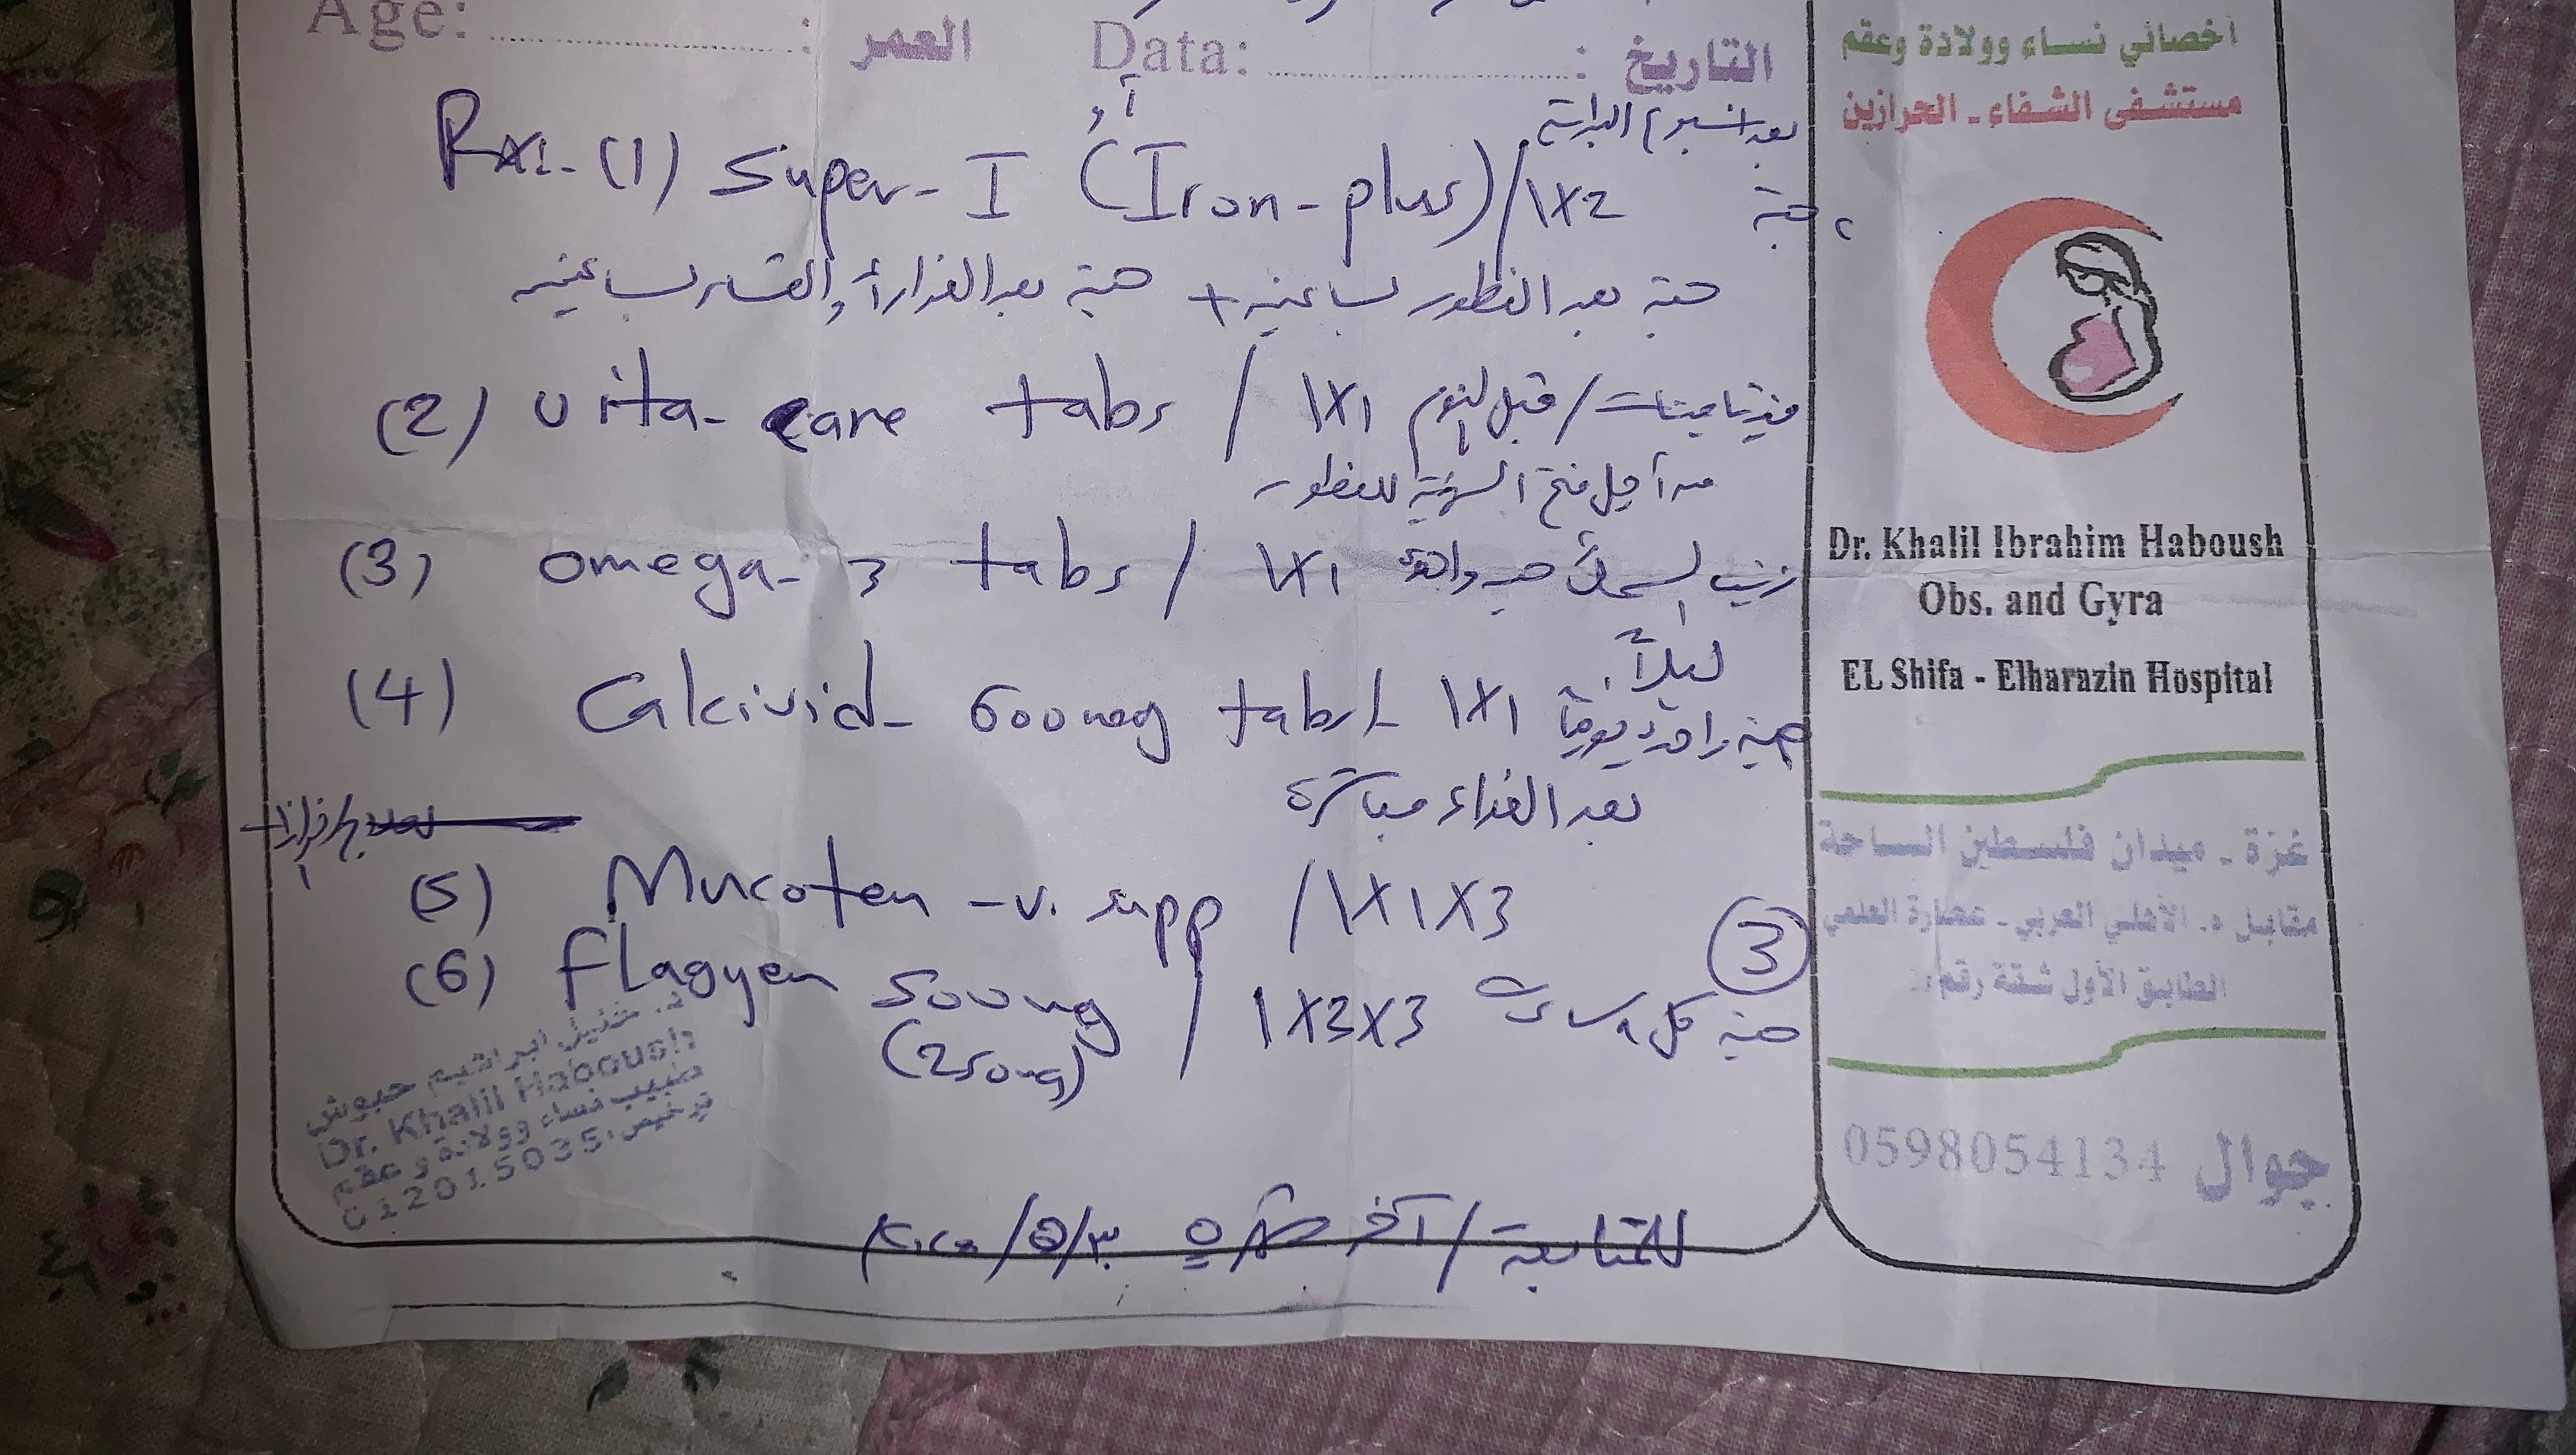 Age: : العمر Data: : التاريخ
أو
Rx1- (1) Super- I (Iron-plus)/1x2 حبة
حبة بعد الفطور بساعتين + حبة بعد الغذاء أو العشاء بساعتين
(2) Vita-care tabs / 1x1 قبل النوم / فيتامينات
من أجل فتح الشهية للفطور
(3) omega-3 tabs / 1x1 زيت السمك حبة واحدة
ليلاً
(4) Calcivid- 600mg tabs/- 1x1 حبة واحدة يومياً
بعد الغذاء مباشرة
(5) Mucoten -v. supp /1x1x3
(6) Flagyen 500mg / 1x3x3 حبة كل ٨ ساعات
(250mg)
3
د. خليل ابراهيم حبوش
Dr. Khalil Haboush
طبيب نساء وولادة وعقم
ترخيص:
للمتابعة / آخر
أخصائي نساء وولادة وعقم
مستشفى الشفاء - الحرازين
Dr. Khalil Ibrahim Haboush
Obs. and Gyra
EL Shifa - Elharazin Hospital
غزة - ميدان فلسطين الساحة
مقابل م. الأهلي العربي - عمارة العلمي
الطابق الأول شقة رقم
جوال 0598054134